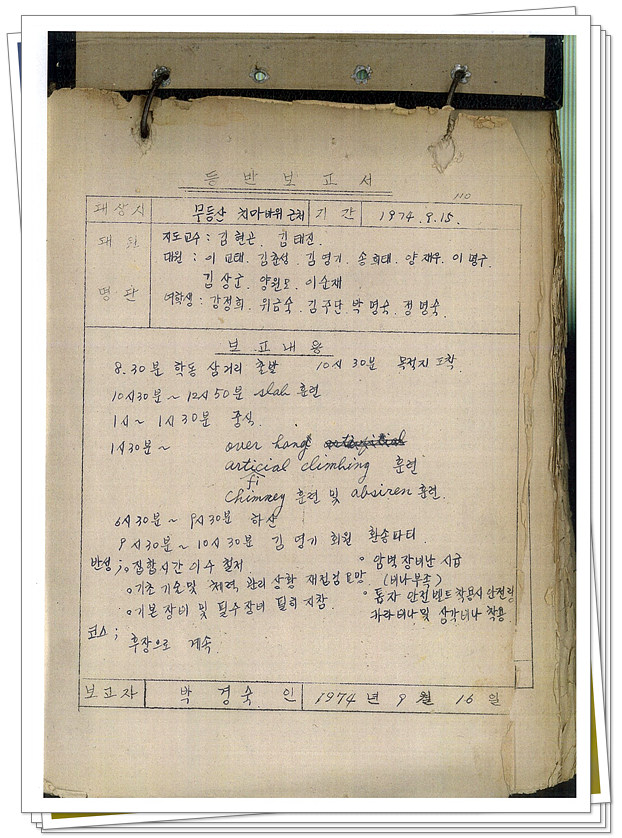 등반보고서
110
대상지 무등산 치마바위 근처 기간 1974. 9. 15.
대원 명단
지도교수 : 김현곤. 김태진.
대원 : 이교태. 김춘성. 김영기. 송희태. 양재우. 이명구.
김상군. 양원모. 이순재.
여학생 : 강정희. 위금숙. 김주단. 박명숙. 정명숙.
보고내용
8.30분 학동 삼거리 출발 10시 30분 목적지 도착.
10시30분 ~ 12시 50분 slab 훈련
1시 ~ 1시 30분 중식.
1시30분 ~ over hang
artificial climbing 훈련
chimney 훈련 및 absiren 훈련.
6시 30분 ~ 9시 30분 하산
9시 30분 ~ 10시 30분 김영기 회원 환송파티.
반성 ; 집합시간 이수 철저. ○ 암벽 장비난 시급
○ 기초 기술 및 체력 관리 상황 재점검 요망. (비나부족)
○ 기본 장비 및 필수 장비 필히 지참. ○ 톱자 안전벨트 착용시 안전링
카라비나 및 삼각비나 착용.
코스 ;
후장으로 계속.
보고자 박경숙 인 1974년 9월 16일